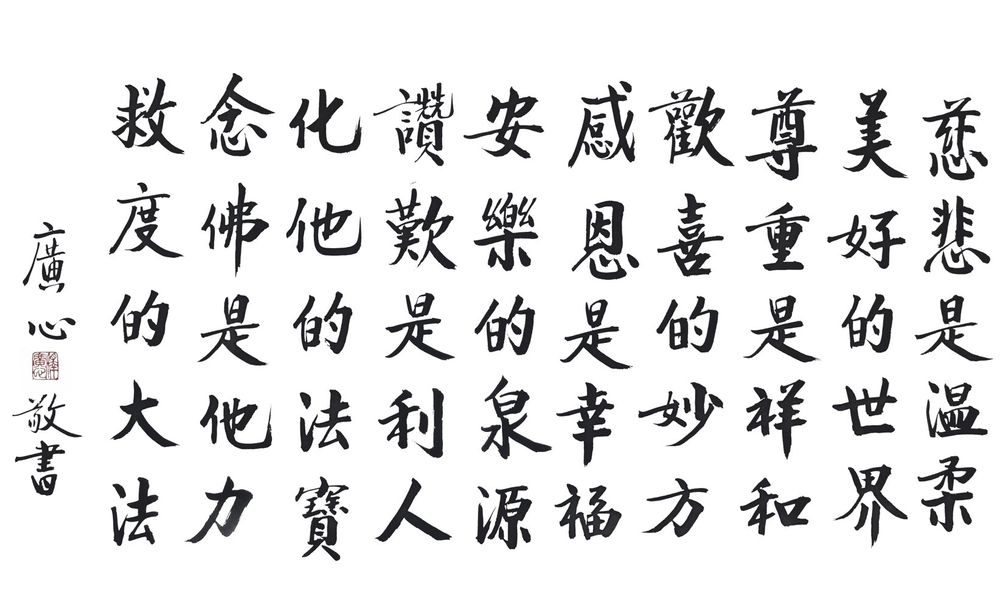 慈悲是温柔
美好的世界
尊重是祥和
歡喜的妙方
感恩是幸福
安樂的泉源
讚歎是利人
化他的法寶
念佛是他力
救度的大法
廣心敬書